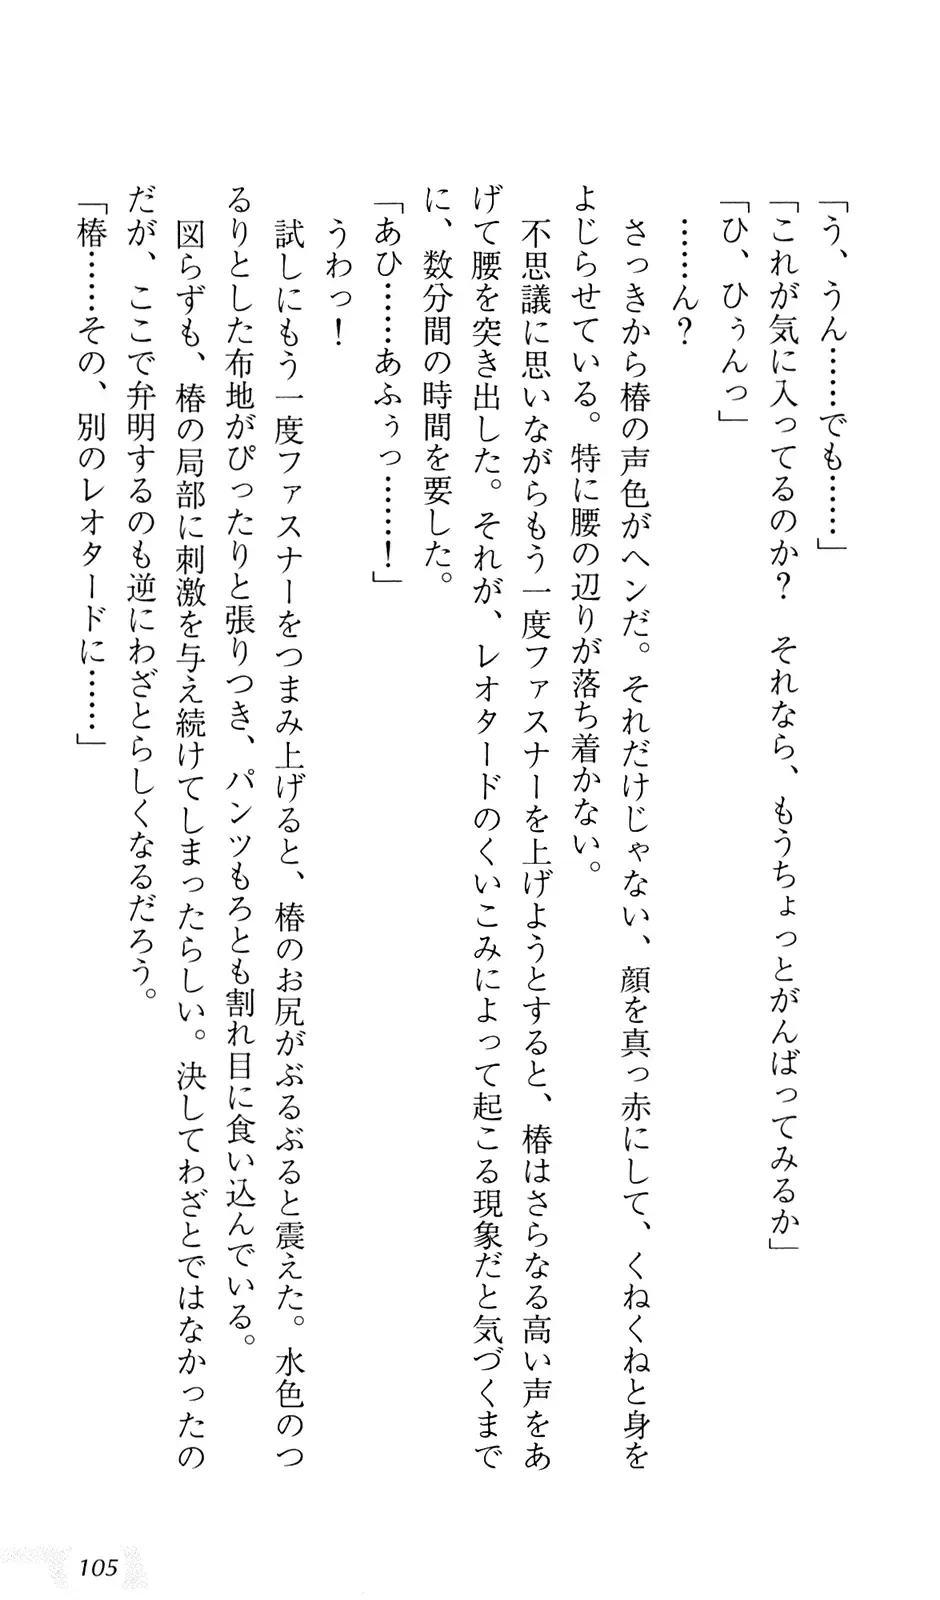 「う、うん……でも……」
「これが気に入ってるのか？　それなら、もうちょっとがんばってみるか」
「ひ、ひぅんっ」
　……ん？
　さっきから椿の声色がヘンだ。それだけじゃない、顔を真っ赤にして、くねくねと身を
よじらせている。特に腰の辺りが落ち着かない。
　不思議に思いながらもう一度ファスナーを上げようとすると、椿はさらなる高い声をあ
げて腰を突き出した。それが、レオタードのくいこみによって起こる現象だと気づくまで
に、数分間の時間を要した。
「あひ……あふぅっ……！」
　うわっ！
　試しにもう一度ファスナーをつまみ上げると、椿のお尻がぶるぶると震えた。水色のつ
るりとした布地がぴったりと張りつき、パンツもろとも割れ目に食い込んでいる。
　図らずも、椿の局部に刺激を与え続けてしまったらしい。決してわざとではなかったの
だが、ここで弁明するのも逆にわざとらしくなるだろう。
「椿……その、別のレオタードに……」
105